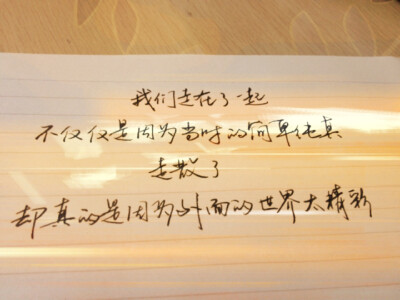 我们走在了一起
不仅仅是因为当时的简单纯真
走散了
却真的是因为外面的世界太精彩